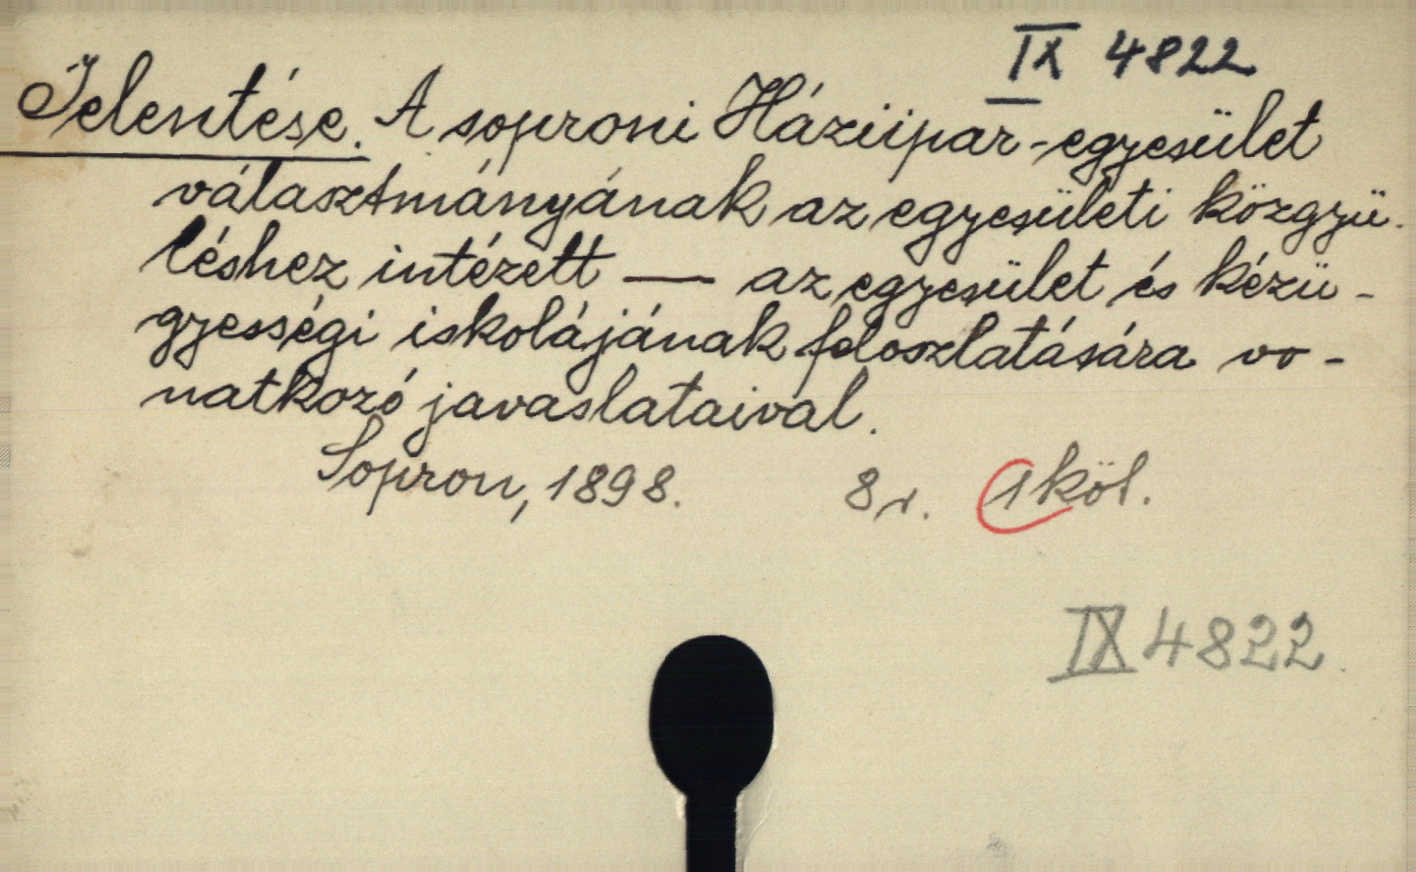 IX 4822
Jelentése. A soproni Háziipar-egyesület
választmányának az egyesületi közgyü-
léshez intézett — az egyesület és kézü-
gyességi iskolájának feloszlatására vo-
natkozó javaslataival.
Sopron, 1898. 8r. 1 köl.
IX 4822